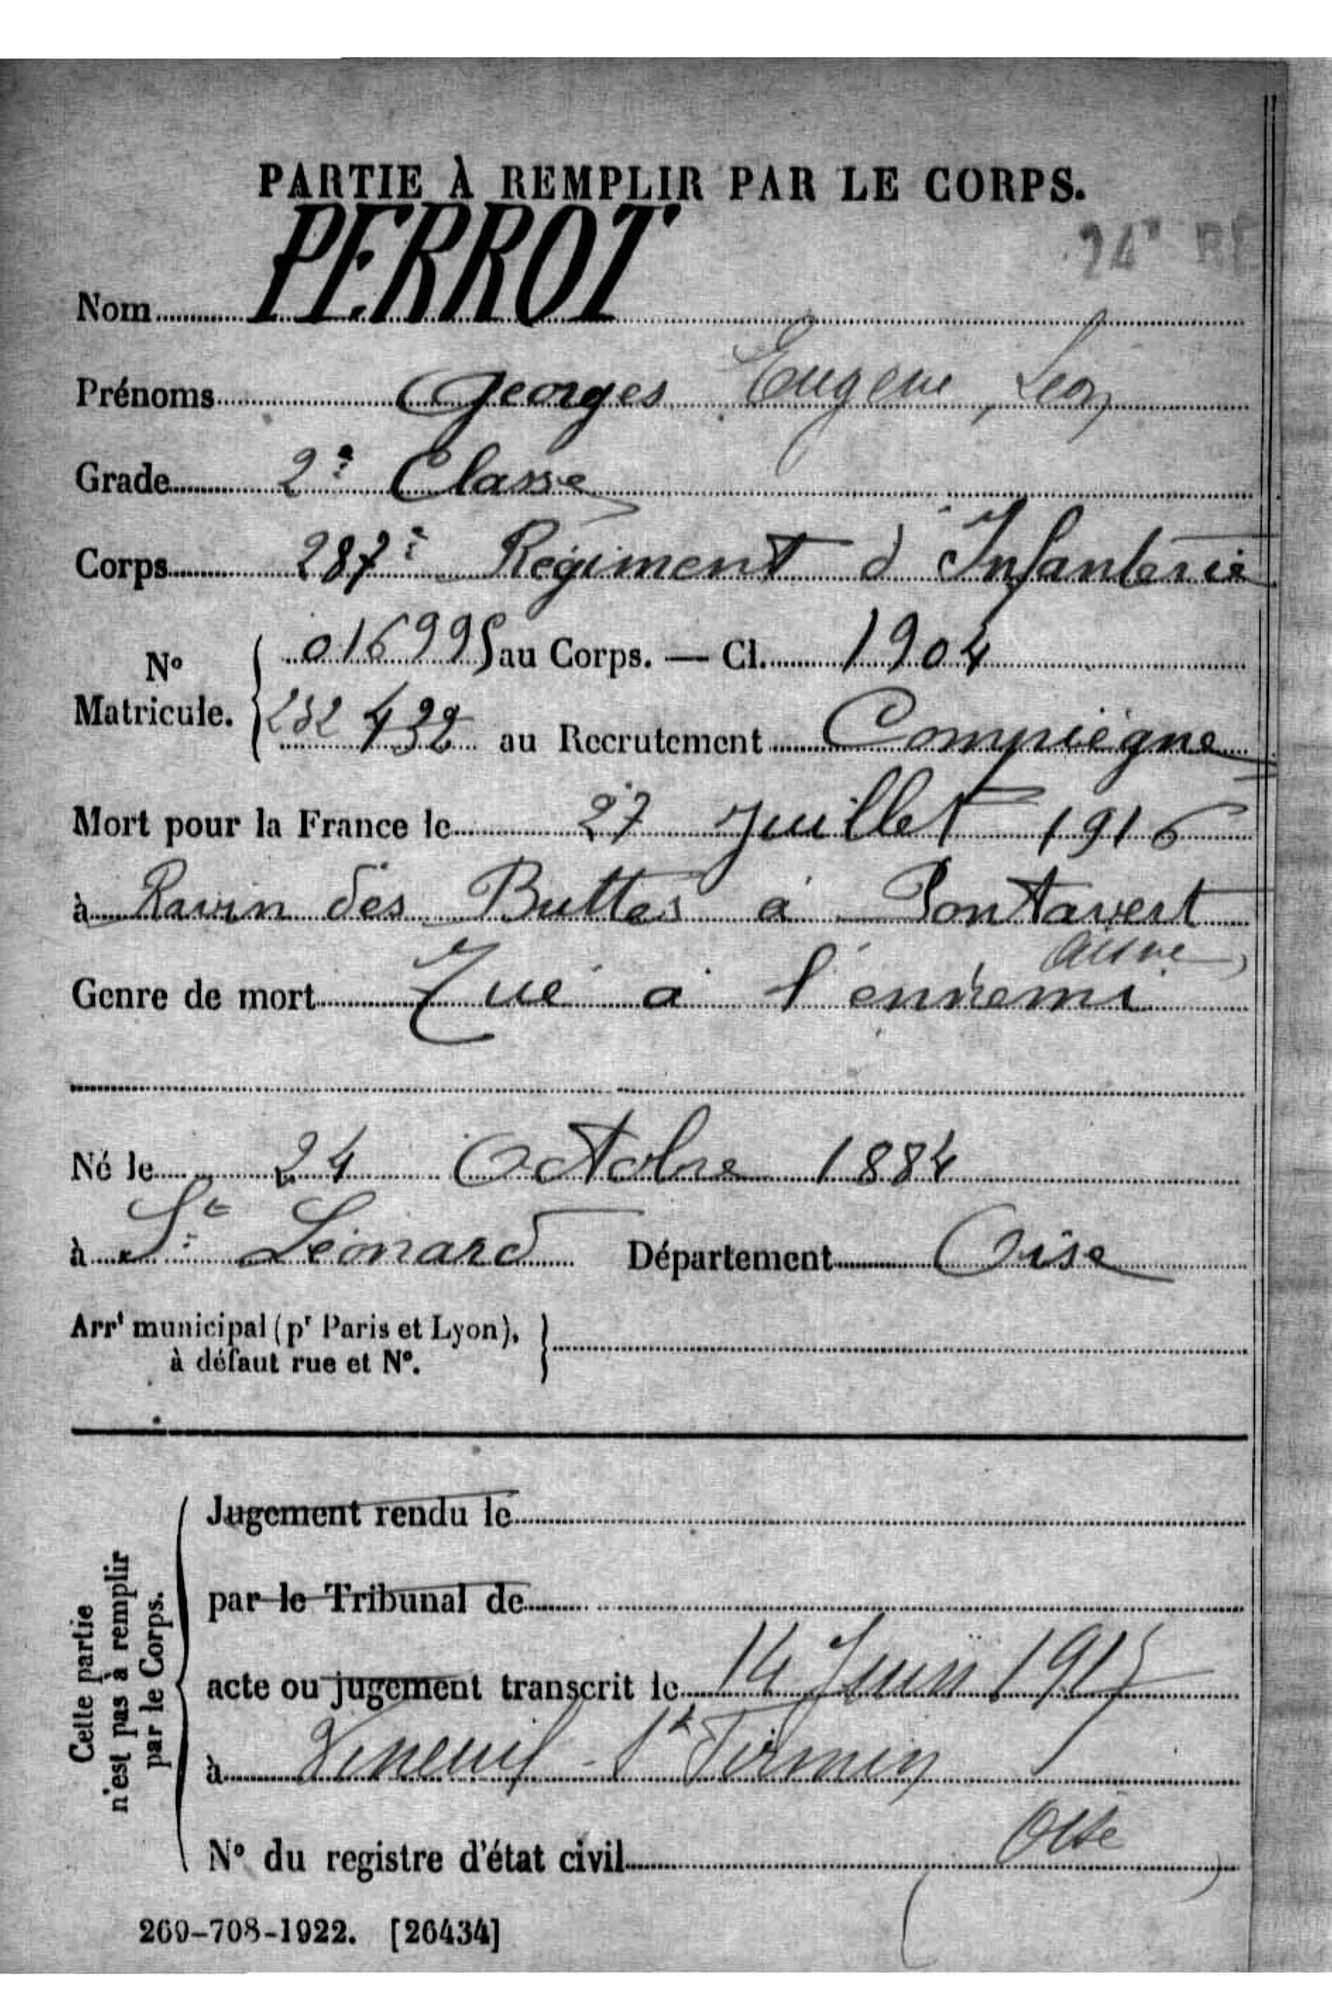 PARTIE À REMPLIR PAR LE CORPS.
24e RE
Nom PERROT
Prénoms Georges Eugène, Léon
Grade 2e Classe
Corps 287e Régiment d'Infanterie
No Matricule. 016995 au Corps. — Cl. 1904
432 au Recrutement Compiègne
Mort pour la France le 27 Juillet 1916
à Ravin des Buttes à Pontavert
Aisne
Genre de mort Tué à l'ennemi
Né le 24 Octobre 1884
à St Léonard Département Oise
Arrt municipal (pr Paris et Lyon),
à défaut rue et No.
Cette partie
n'est pas à remplir
par le Corps.
Jugement rendu le
par le Tribunal de
acte ou jugement transcrit le 14 Juin 1917
à Vineuil-St Firmin
Oise
No du registre d'état civil
269-708-1922. [26434]